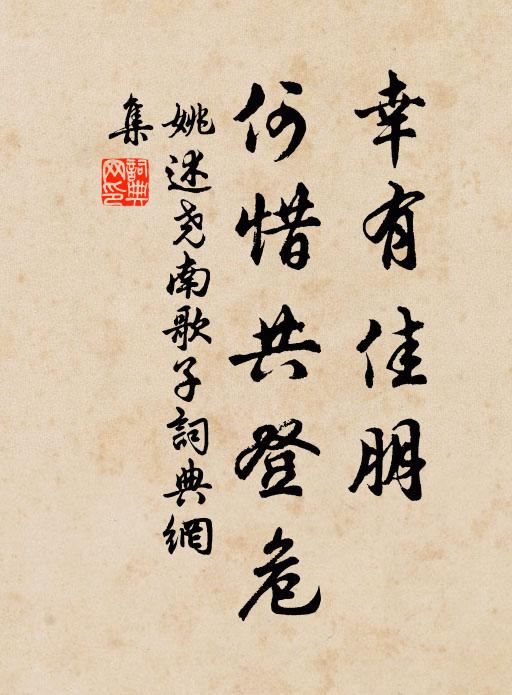 幸有佳朋
何惜共登危
姚述尧南歌子詞典網
集
詞典網印